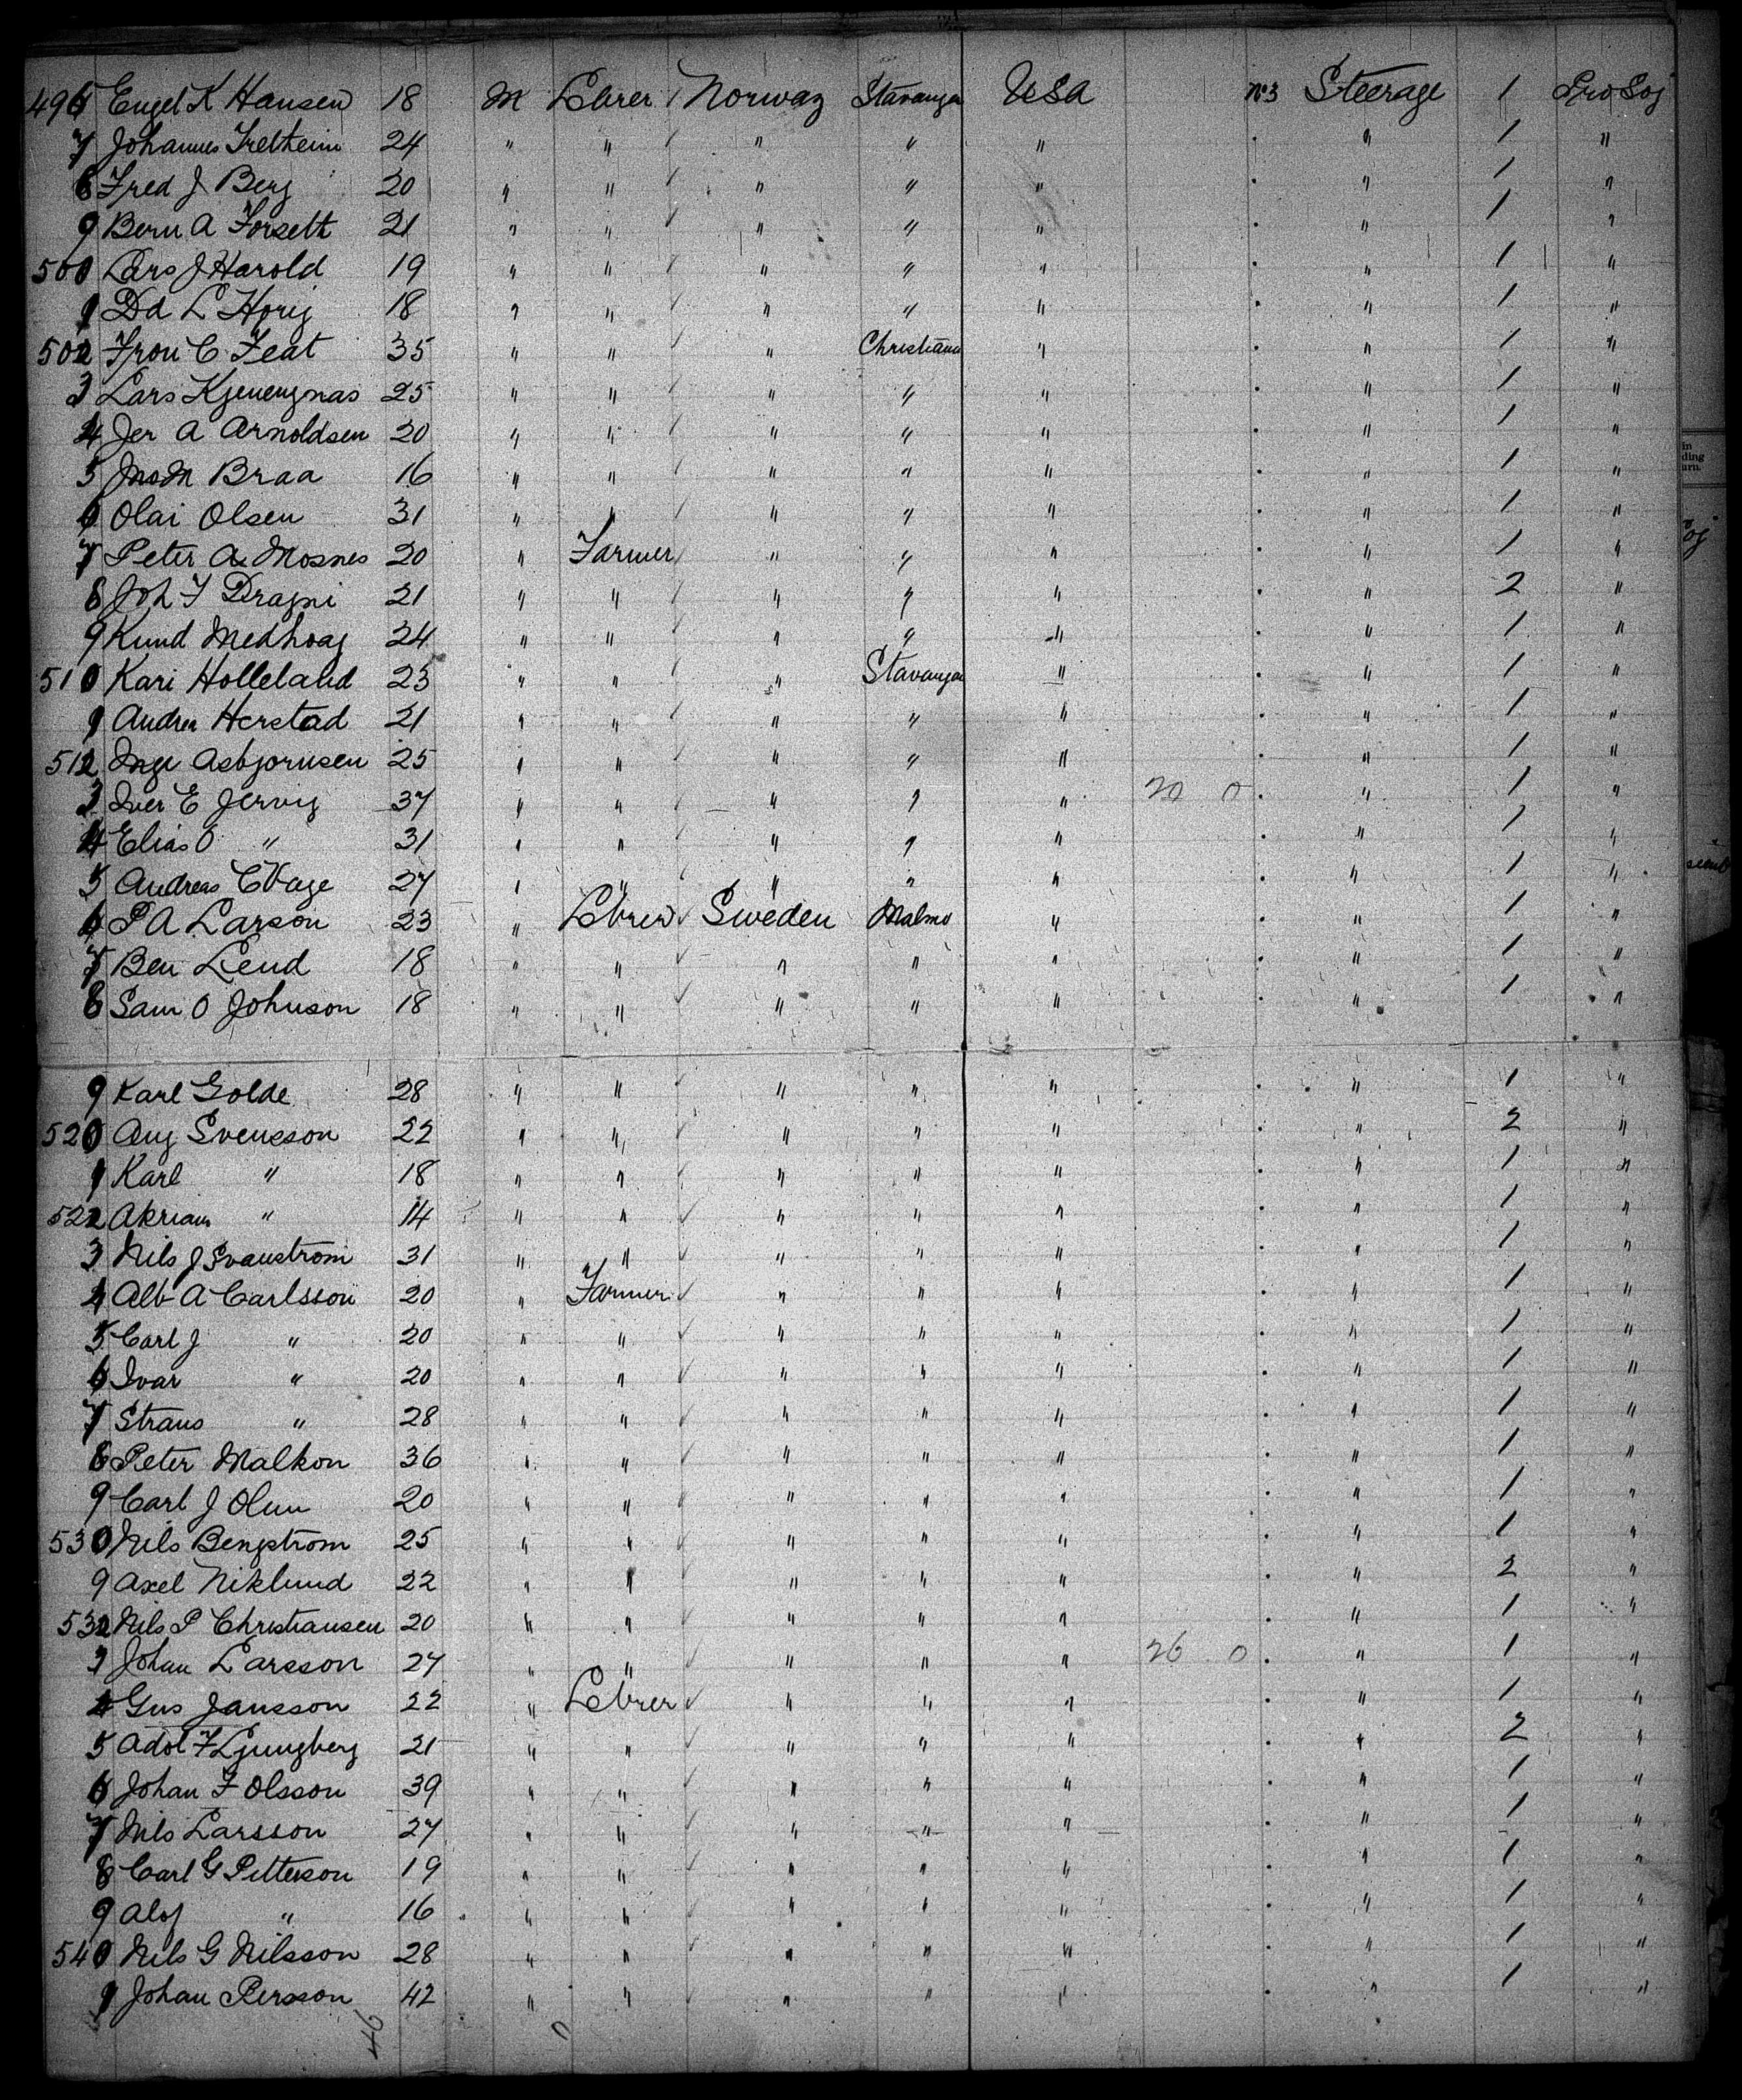 496 Engel K Hansen 18 M Lbrer Norway Stavanger USA No 3 Steerage 1 Pro Soj
7 Johannes Tretheim 24 " " " " " " 1 "
8 Fred J Berg 20 " " " " " " 1 "
9 Bern A Forseth 21 " " " " " " 1 "
500 Lars J Harold 19 " " " " " " 1 "
1 L 18 " " " " " " 1 "
502 C Feat 35 " " " Christiana " " 1 "
3 Lars 25 " " " " " " 1 "
4 Jer A Arnoldsen 20 " " " " " " 1 "
5 Braa 16 " " " " " " 1 "
6 Olai Olsen 31 " " " " " " 1 "
7 Peter A Mosnes 20 " Farmer " " " " 1 "
8 Joh F Dragni 21 " " " " " " 2 "
9 Knud Medhoag 24 " " " " " " 1 "
510 Kari Holleland 23 " " " Stavanger " " 1 "
1 Andrea Herstad 21 " " " " " " 1 "
512 Inge Asbjornsen 25 " " " " " " 1 "
3 Iver E Jervig 37 " " " " " 20 0 " 1 "
4 Elias O " 31 " " " " " " 1 "
5 Andreas C Vage 27 " " " " " " 1 "
6 P A Larson 23 " Lbrer Sweden Malmo " " 1 "
7 Ben Lend 18 " " " " " " 1 "
8 Sam O Johnson 18 " " " " " " 1 "
9 Karl Golde 28 " " " " " " 1 "
520 Aug Svensson 22 " " " " " " 2 "
1 Karl " 18 " " " " " " 1 "
522 Akriam " 14 " " " " " " 1 "
3 Nils J Svanstrom 31 " " " " " " 1 "
4 Alb A Carlsson 20 " Farmer " " " " 1 "
5 Carl J " 20 " " " " " " 1 "
6 Ivar " 20 " " " " " " 1 "
7 Straus " 28 " " " " " " 1 "
8 Peter Malkon 36 " " " " " " 1 "
9 Carl J Olun 20 " " " " " " 1 "
530 Nils Bengstrom 25 " " " " " " 1 "
9 Axel Niklund 22 " " " " " " 2 "
532 Nils P Christiansen 20 " " " " " " 1 "
3 Johan Larsson 27 " " " " " 26 0 " 1 "
4 Gus Jansson 22 " Lbrer " " " " 1 "
5 Adol F Ljungberg 21 " " " " " " 2 "
6 Johan F Olsson 39 " " " " " " 1 "
7 Nils Larsson 27 " " " " " " 1 "
8 Carl G Petterson 19 " " " " " " 1 "
9 Alof " 16 " " " " " " 1 "
540 Nils G Nilsson 28 " " " " " " 1 "
1 Johan Persson 42 " " " " " " 1 "
46